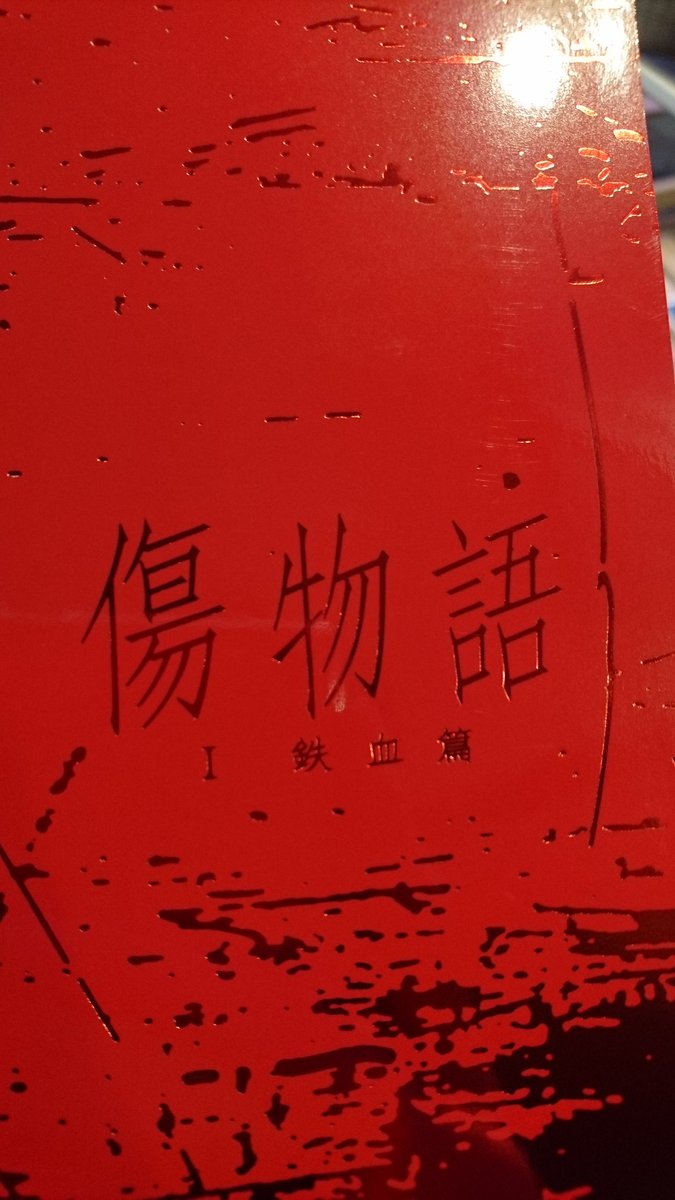 傷物語
I 鉄血篇